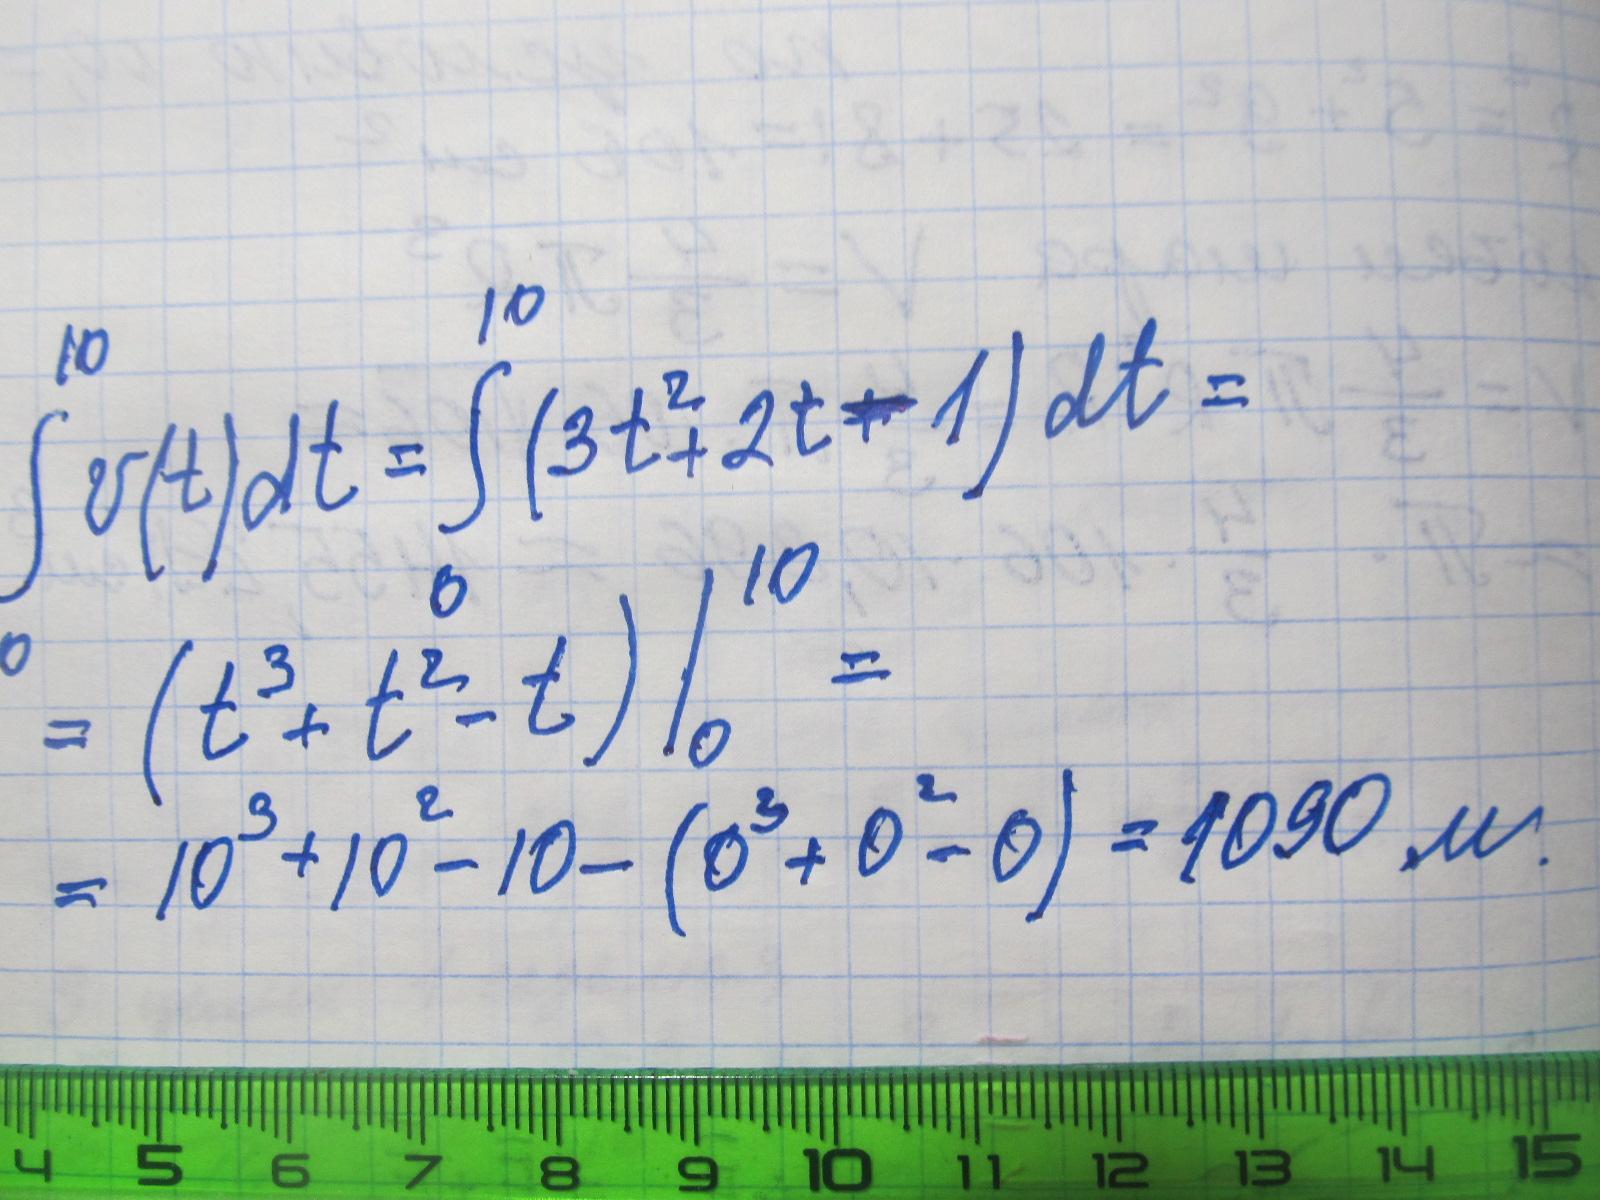 ∫₀¹⁰ v(t)dt = ∫₀¹⁰ (3t² + 2t - 1) dt =
= (t³ + t² - t) |₀¹⁰ =
= 10³ + 10² - 10 - (0³ + 0² - 0) = 1090 м.
4 5 6 7 8 9 10 11 12 13 14 15